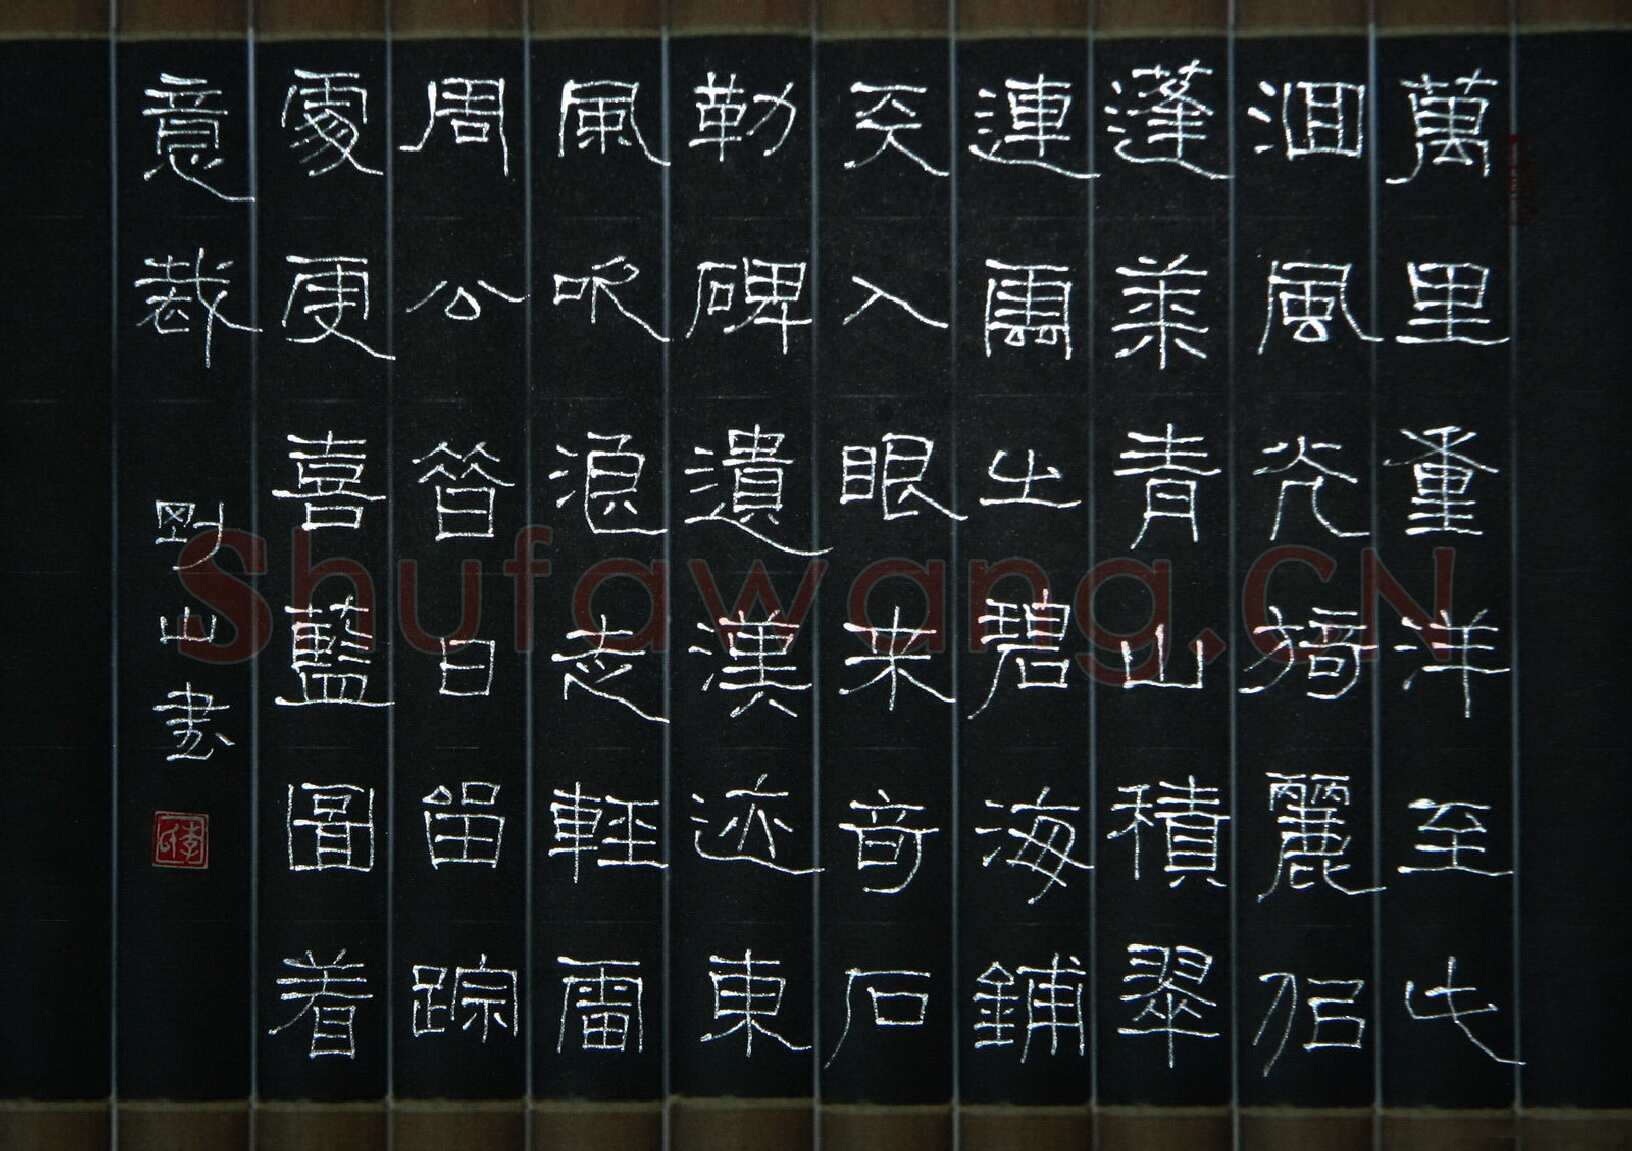 萬里重洋至此
洄風光旖麗似
蓬萊青山積翠
連雲出碧海鋪
天入眼来奇石
勒碑遺漢迹東
風吹浪走輕雷
周公昔日留踪
處更喜藍圖着
意裁
剛山書
Shufawang.CN